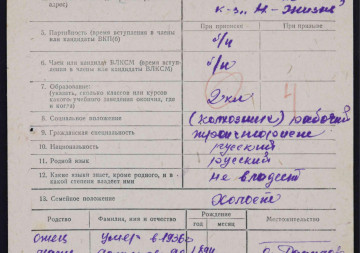 адрес)
к-з. "М-Жизнь"
При приписке При призыве
5. Партийность (время вступления в члены
или кандидаты ВКП(б) б/п
6. Член или кандидат ВЛКСМ (время вступ-
ления в члены или кандидаты ВЛКСМ) б/п
7. Образование:
(указать, сколько классов или курсов
какого учебного заведения окончил, где
и когда) 2 кл 4
8. Социальное положение (колхозник) рабочий
9. Гражданская специальность тракторист
10. Национальность русский
11. Родной язык русский
12. Какие языки знает, кроме родного, и в
какой степени владеет ими не владеет
13. Семейное положение Холост
Родство Фамилия, имя и отчество Рождение Местожительство
год месяц
Отец умер в 1936г